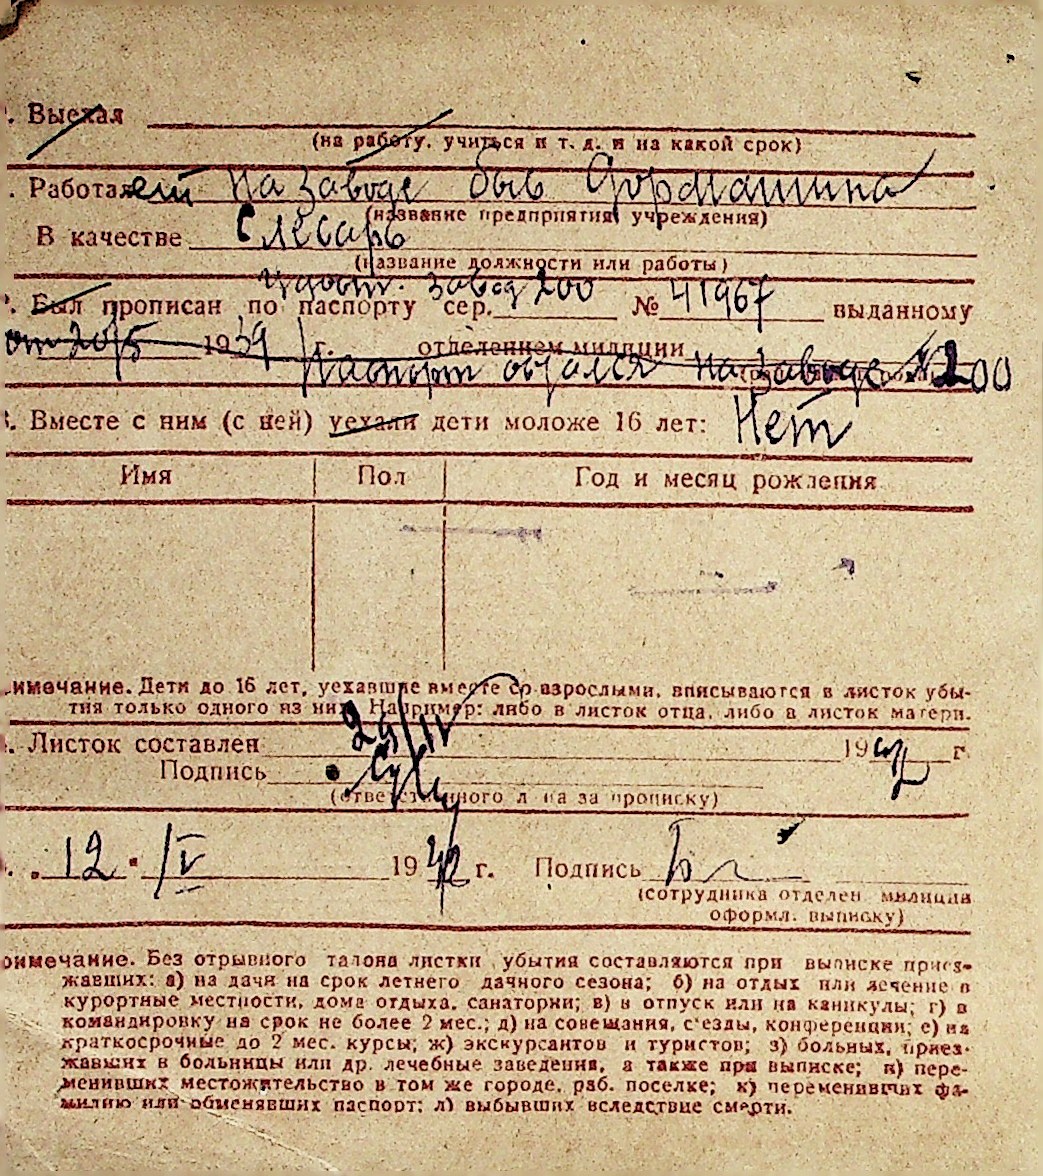 . Выехал
(на работу, учиться и т. д. и на какой срок)
. Работает на заводе быв Дормашина
(название предприятия, учреждения)
В качестве Слесарь
(название должности или работы)
завод 200
Был прописан по паспорту сер. № 41967 выданному
от 20/5 1939 г. отделением милиции
Паспорт остался на заводе № 200
. Вместе с ним (с ней) уехали дети моложе 16 лет: Нет
Имя Пол Год и месяц рождения
имечание. Дети до 16 лет, уехавшие вместе со взрослыми, вписываются в листок убы-
тия только одного из них. Например: либо в листок отца, либо в листок матери.
. Листок составлен 29/IV 1942 г.
Подпись
(ответственного л на за прописку)
. 12 IV 1942 г. Подпись
(сотрудника отделен. милиции
оформл. выписку)
римечание. Без отрывного талона листки убытия составляются при выписке приез-
жавших: а) на дачи на срок летнего дачного сезона; б) на отдых или лечение в
курортные местности, дома отдыха, санатории; в) в отпуск или на каникулы; г) в
командировку на срок не более 2 мес.; д) на совещания, с'езды, конференции; е) на
краткосрочные до 2 мес. курсы; ж) экскурсантов и туристов; з) больных, приез-
жавших в больницы или др. лечебные заведения, а также при выписке; и) пере-
менивших местожительство в том же городе, раб. поселке; к) переменивших фа-
милию или обменявших паспорт; л) выбывших вследствие смерти.